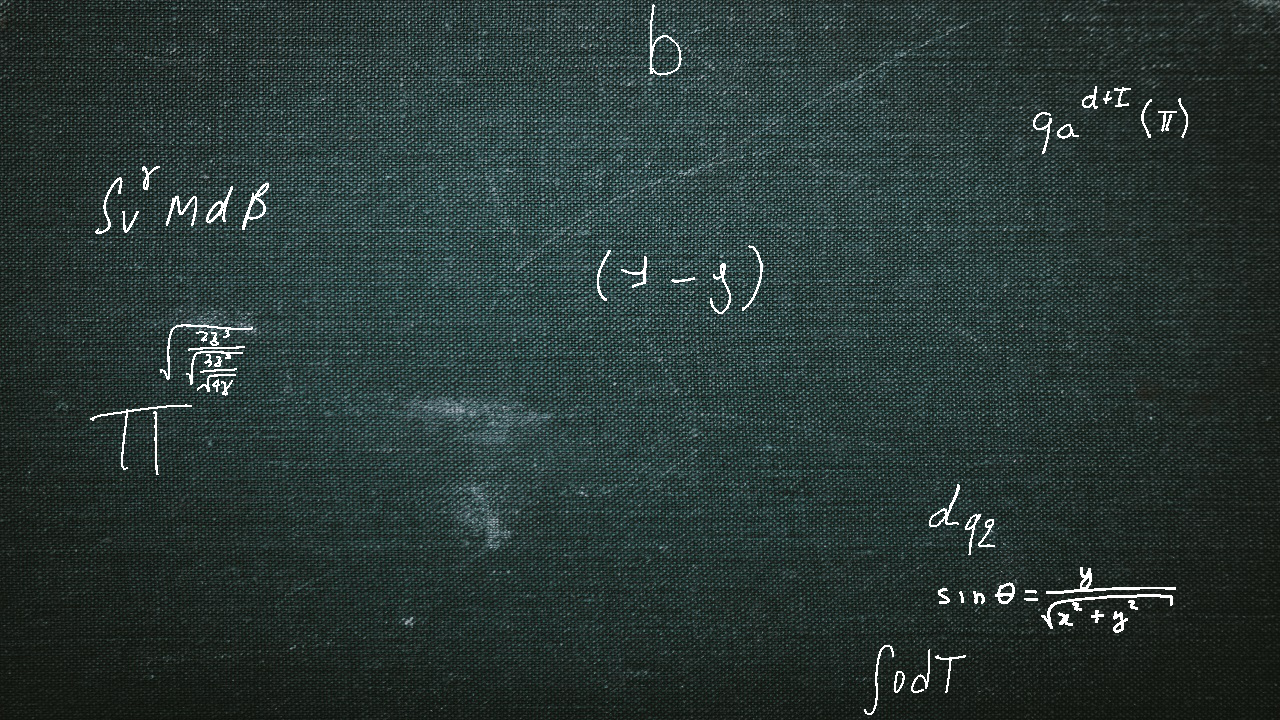 b
qa^{d+I}(π)
∫_v^γ M d β
(y - y)
√(2z³/√(3z²/√(4z)))
∏
d_{q_2}
sin θ = y/√(x² + y²)
∫0dT